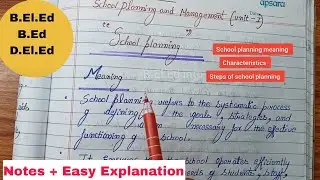 School Planning and Management (unit-I)
apsara
B.El.Ed
B.Ed
D.El.Ed
"School planning"
School planning meaning
Characteristics
Steps of school planning
Meaning
• School planning refers to the systematic process
of defining the goals, strategies, and
necessary for the effective
functioning of a school.
• It ensures the school operates efficiently
needs of students, staff,
Notes + Easy Explanation